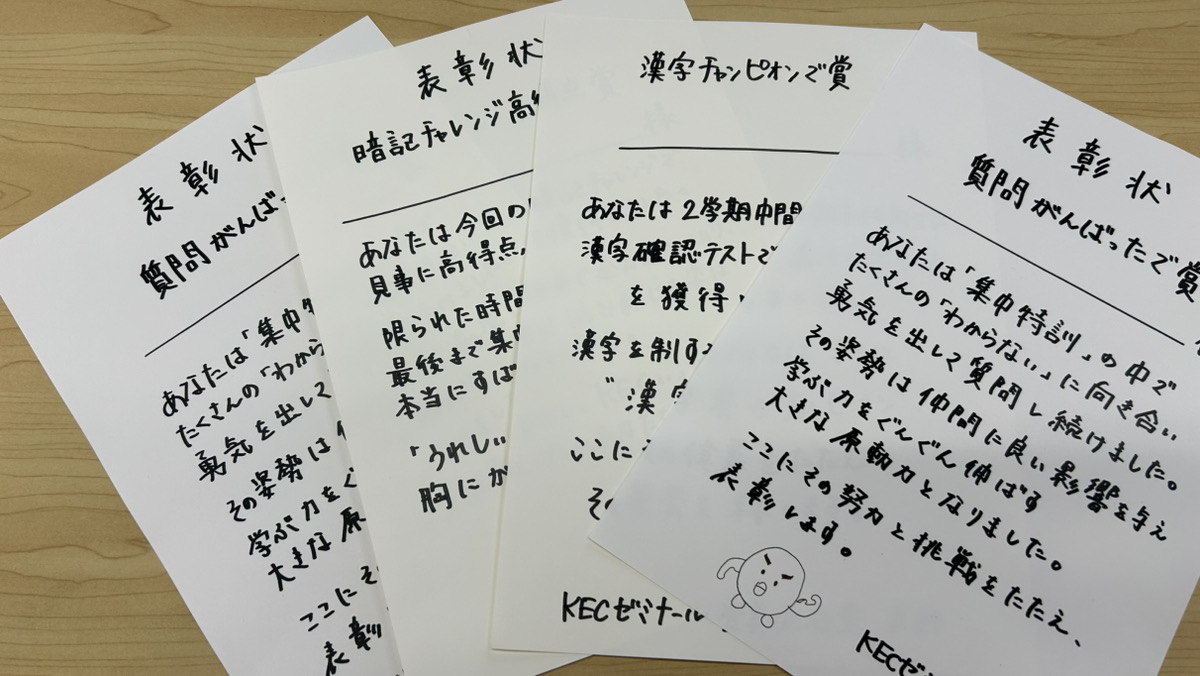 表彰状
質問がんばっ
あなたは「集中特
たくさんの「わから
勇気を出して
その姿勢は
学ぶ力をぐ
大きな原
ここにそ
表彰
表彰状
暗記チャレンジ高
あなたは今回の
見事に高得点
限られた時間
最後まで集
本当にすば
「うれしい
胸にか
漢字チャンピオンで賞
あなたは2学期中間
漢字確認テストで
を獲得
漢字を制する
"漢字
ここに
そ
KECゼミナール
表彰状
質問がんばったで賞
あなたは「集中特訓」の中で
たくさんの「わからない」に向き合い
勇気を出して質問し続けました。
その姿勢は仲間に良い影響を与え
学ぶ力をぐんぐん伸ばす
大きな原動力となりました。
ここにその努力と挑戦をたたえ、
表彰します。
KECゼ